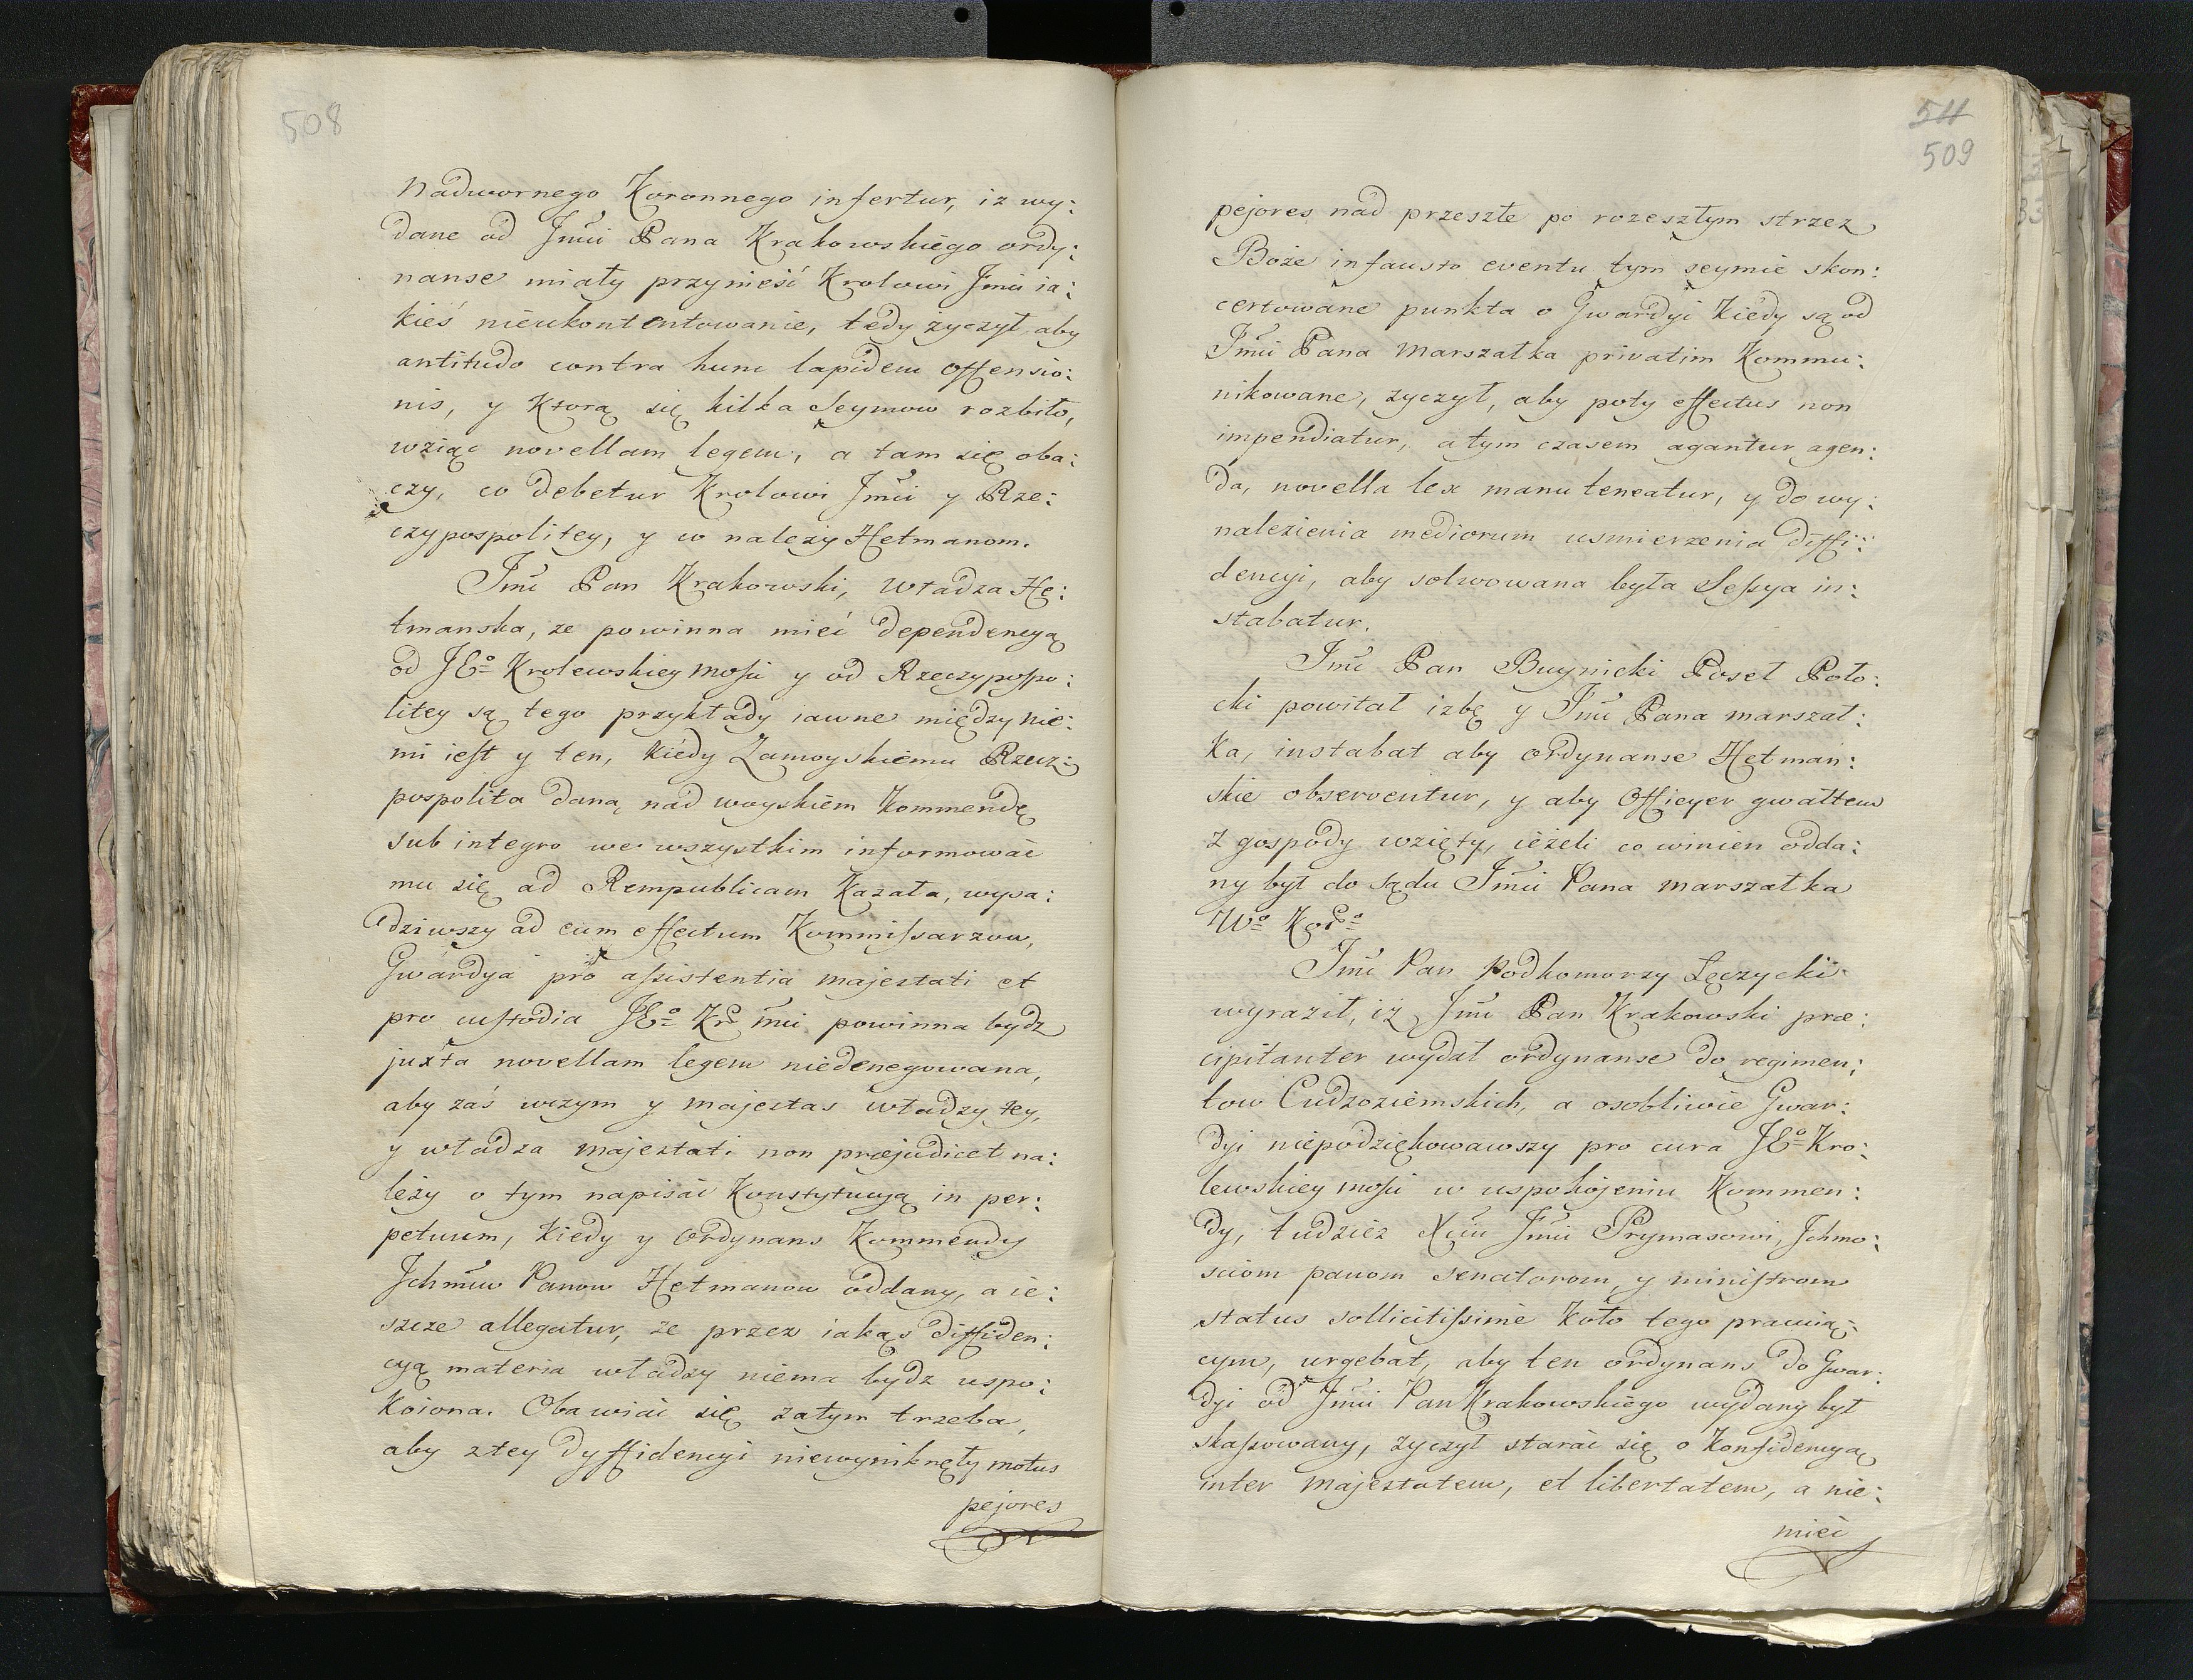 508
Nadwornego Koronnego infertur, iz wy:
dane od Jmći Pana Krakowskiego ordy:
nanse miały przynieść Krolowi Jmći ia:
kieś nieukontentowanie, tedy życzył aby
antitudo contra hunc lapidem offensio:
nis, y ktorą się kilka Seymow rozbiło,
wziąć novellam legem, a tam się oba:
czy, co debetur Krolowi Jmći y Rze:
czypospolitey, y co należy Hetmanom.
Jmć Pan Krakowski, władza He:
tmanska, ze powinna mieć dependencyą
od JEo Krolewskiey Mości y od Rzeczypospo:
litey są tego przykłady iawne między nie:
mi iest y ten, kiedy Zamoyskiemu Rzecz:
pospolita daną nad woyskiem Kommendę
sub integro we wszystkim informować
mu się ad Rempublicam Kazała, wysa:
dziwszy ad eum effectum Kommissarzow,
Gwardya pro assistentia majestati et
pro custodia JEo Kr Mći powinna bydz
juxta novellam legem niedenegowana,
aby zaś wczym y majestas władzy tey,
y władza majestati non præjudicet na:
leży o tym napisać Konstytucyą in per:
petuum, kiedy y Ordynans Kommendy
Jchmćiow Panow Hetmanow oddany, a ie:
szcze allegatur, ze przez iakąs diffiden:
cyą materia władzy niema bydz uspo:
koiona. Obawiać się zatym trzeba,
aby ztey dyffidencyi niewyniknęły motus
pejores
511
509
pejores nad przeszłe po rozeszłym strzez
Boże infausto eventu tym seymie skon:
certowane punkta o Gwardyi kiedy są od
Jmći Pana Marszałka privatim Kommu:
nikowane, zyczył, aby poty effectus non
impendiatur, a tym czasem agantur agen:
da, novella lex manuteneatur, y do wy:
nalezienia mediorum usmierzenia diffi:
dencyi, aby solwowana była Sessya in:
stabatur.
Jmć Pan Buynicki Poseł Poło:
cki powitał izbę y Jmći Pana marszał:
ka, instabat aby ordynanse Hetman:
skie observentur, y aby Officyer gwałtem
z gospody wzięty, ieżeli co winien odda:
ny był do sądu Jmći Pana marszałka
Wo Koro
Jmć Pan Podkomorzy Łęczycki
wyraził, iż Jmć Pan Krakowski præ:
cipitanter wydał ordynanse do regimen:
tow Cudzoziemskich, a osobliwie Gwar:
dyi niepodziękowawszy pro cura JEo Kro:
lewskiey mości w uspokojeniu Kommen:
dy, tudziez Xciu Jmći Prymasowi, Jchmo:
sciom panom senatorom, y ministrom
status sollicitissime koło tego pracuią:
cym, urgebat, aby ten ordynans do Gwar:
dyi od Jmći Pan Krakowskiego wydany był
skassowany, zyczył starać się o konfidencyą
inter Majestatem, et libertatem, a nie:
mieć